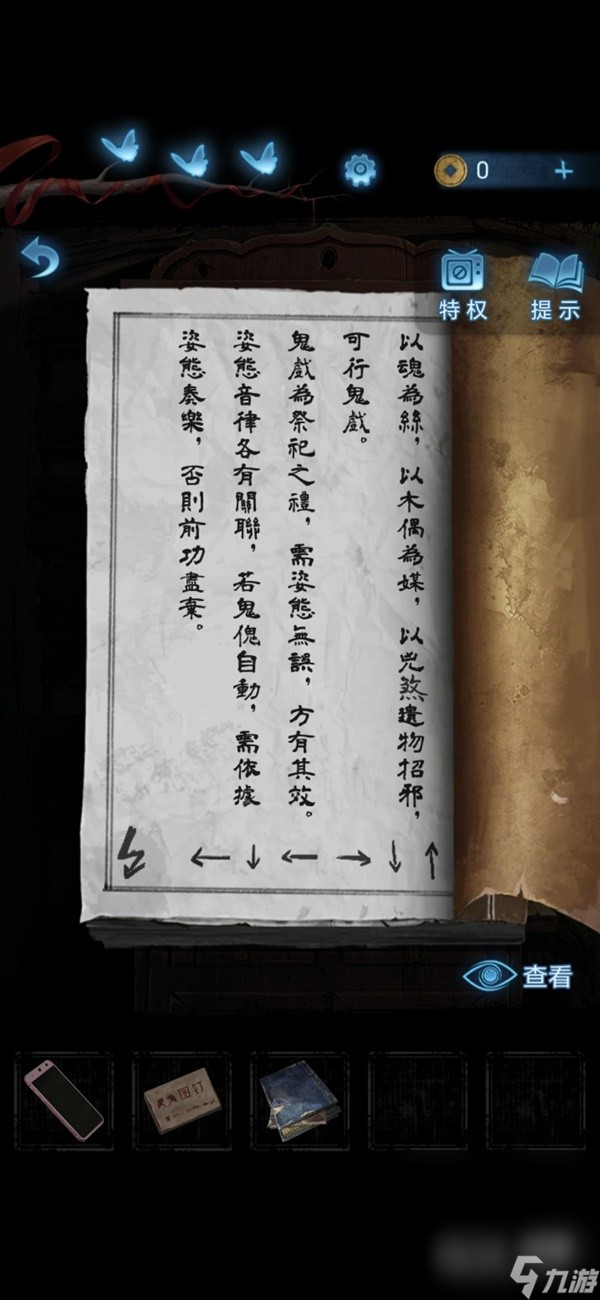 0
特权
提示
以魂為絲，以木偶為媒，以兇煞遺物招邪，
可行鬼戲。
鬼戲為祭祀之禮，需姿態無誤，方有其效。
姿態音律各有關聯，若鬼傀自動，需依據
姿態奏樂，否則前功盡棄。
← ↓ ← → ↓ ↑
查看
图钉
九游